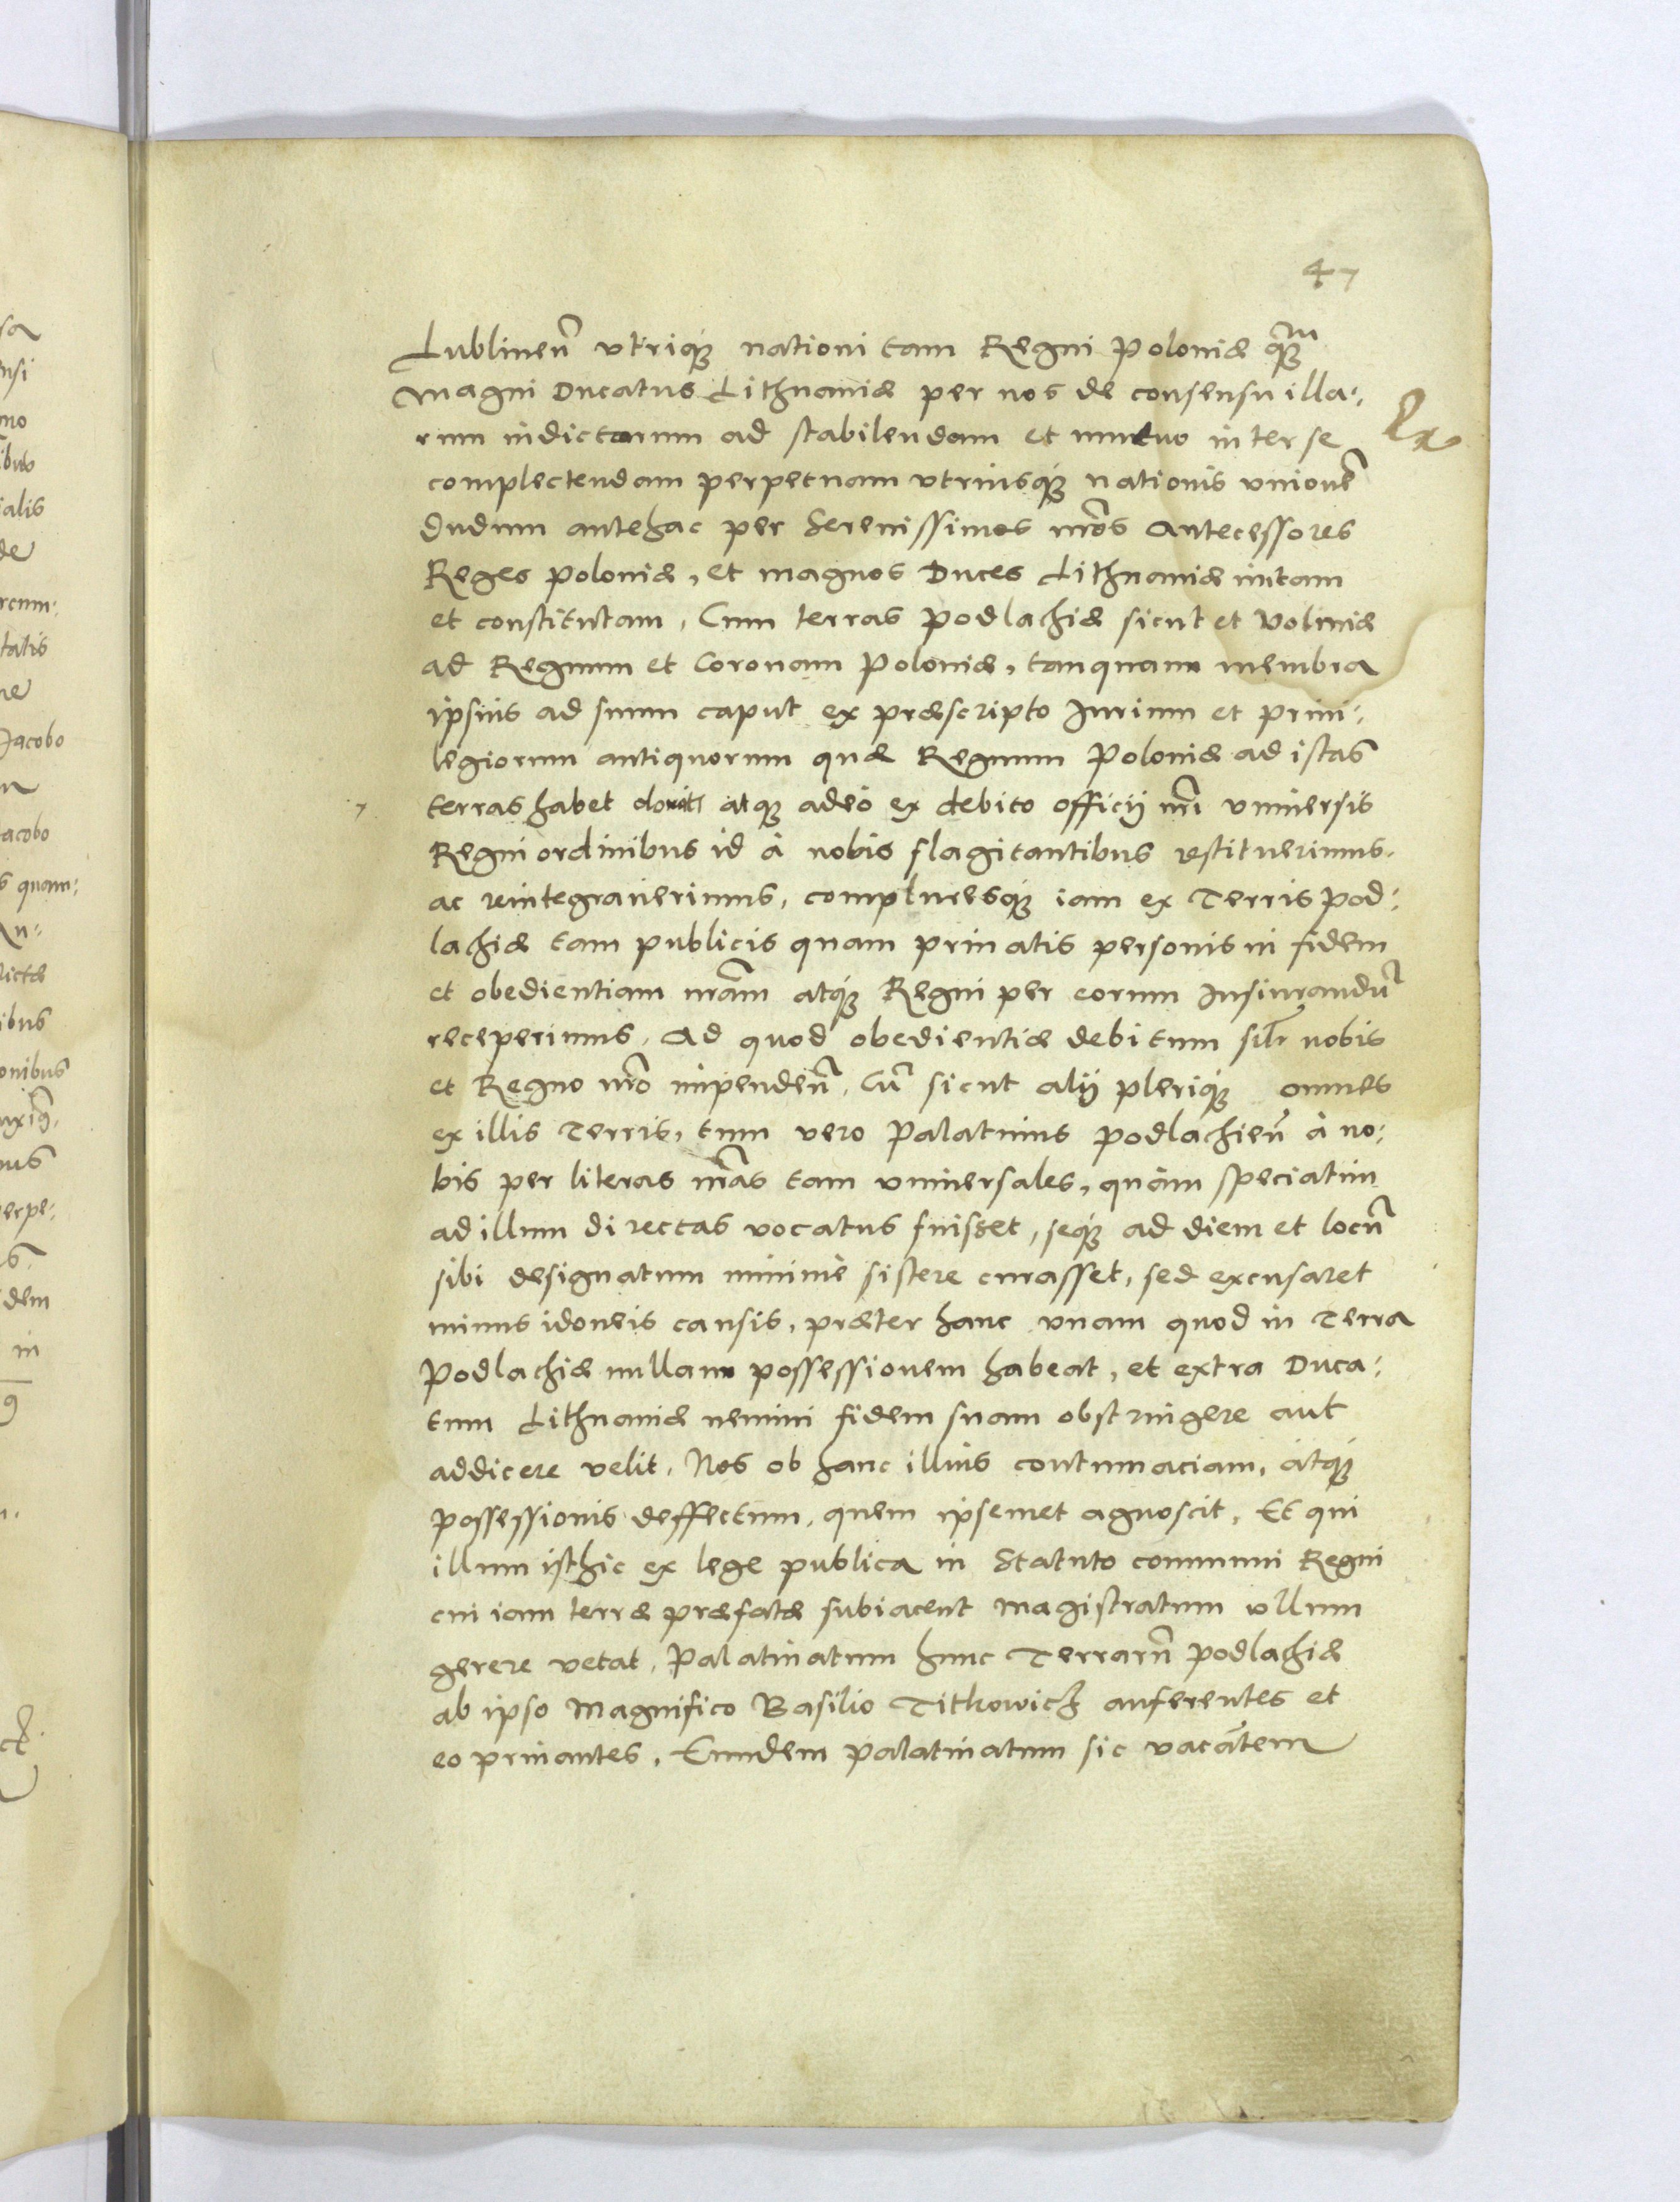 47
Lublinen̄ vtriq́ꝫ nationi tam Regni Poloniæ q̃ꝫ
Magni Ducatus Lithuaniæ per nos de consensu illa:
rum indictarum ad stabilendam et mutuo inter se
complectendam perpetuam vtriusq́ꝫ nationis vnionē
dudum antehac per Serenissimos nr̄os Antecessores
Reges Poloniæ, et magnos Duces Lithuaniæ initam
et constitutam, Cum terras Podlachiæ sicut et Voliniæ
ad Regnum et Coronam Poloniæ, tanquam membra
ipsius ad suum caput ex præscripto Iurium et priui:
legiorum antiquorum quæ Regnum Poloniæ ad istas
terras habet atqꝫ adeò ex debito officij nr̄i vniuersis
Regni ordinibus id à nobis flagitantibus restituerimus.
ac reintegrauerimus, compluresq́ꝫ iam ex Terris Pod:
lachiæ tam publicis quam priuatis personis in fidem
et obedientiam nr̄am atq́ꝫ Regni per eorum Iusiurandū
receperimus, Ad quod obedientiæ debitum sil̄r nobis
et Regno nr̄o impenden̄. Cū sicut alij pleriq́ꝫ omnes
ex illis Terris, tum vero Palatinus Podlachien̄ à no:
bis per literas nr̄as tam vniuersales, quàm speciatim
ad illum directas vocatus fuisset, seq́ꝫ ad diem et locū
sibi designatum minimè sistere curasset, sed excusaret
minus idoneis causis, præter hanc vnam quod in Terra
Podlachiæ nullam possessionem habeat, et extra Duca:
tum Lithuaniæ nemini fidem suam obstringere aut
addicere velit, Nos ob hanc illius contumaciam, atq́ꝫ
possessionis deffectum, quem ipsemet agnoscit, Et qui
illum isthic ex lege publica in Statuto communi Regni
cui iam terræ præfatæ subiacent Magistratum vllum
gerere vetat, Palatinatum hunc Terrarū Podlachiæ
ab ipso Magnifico Basilio Titkowicz auferentes et
eo priuantes, Eundem Palatinatum sic vacātem